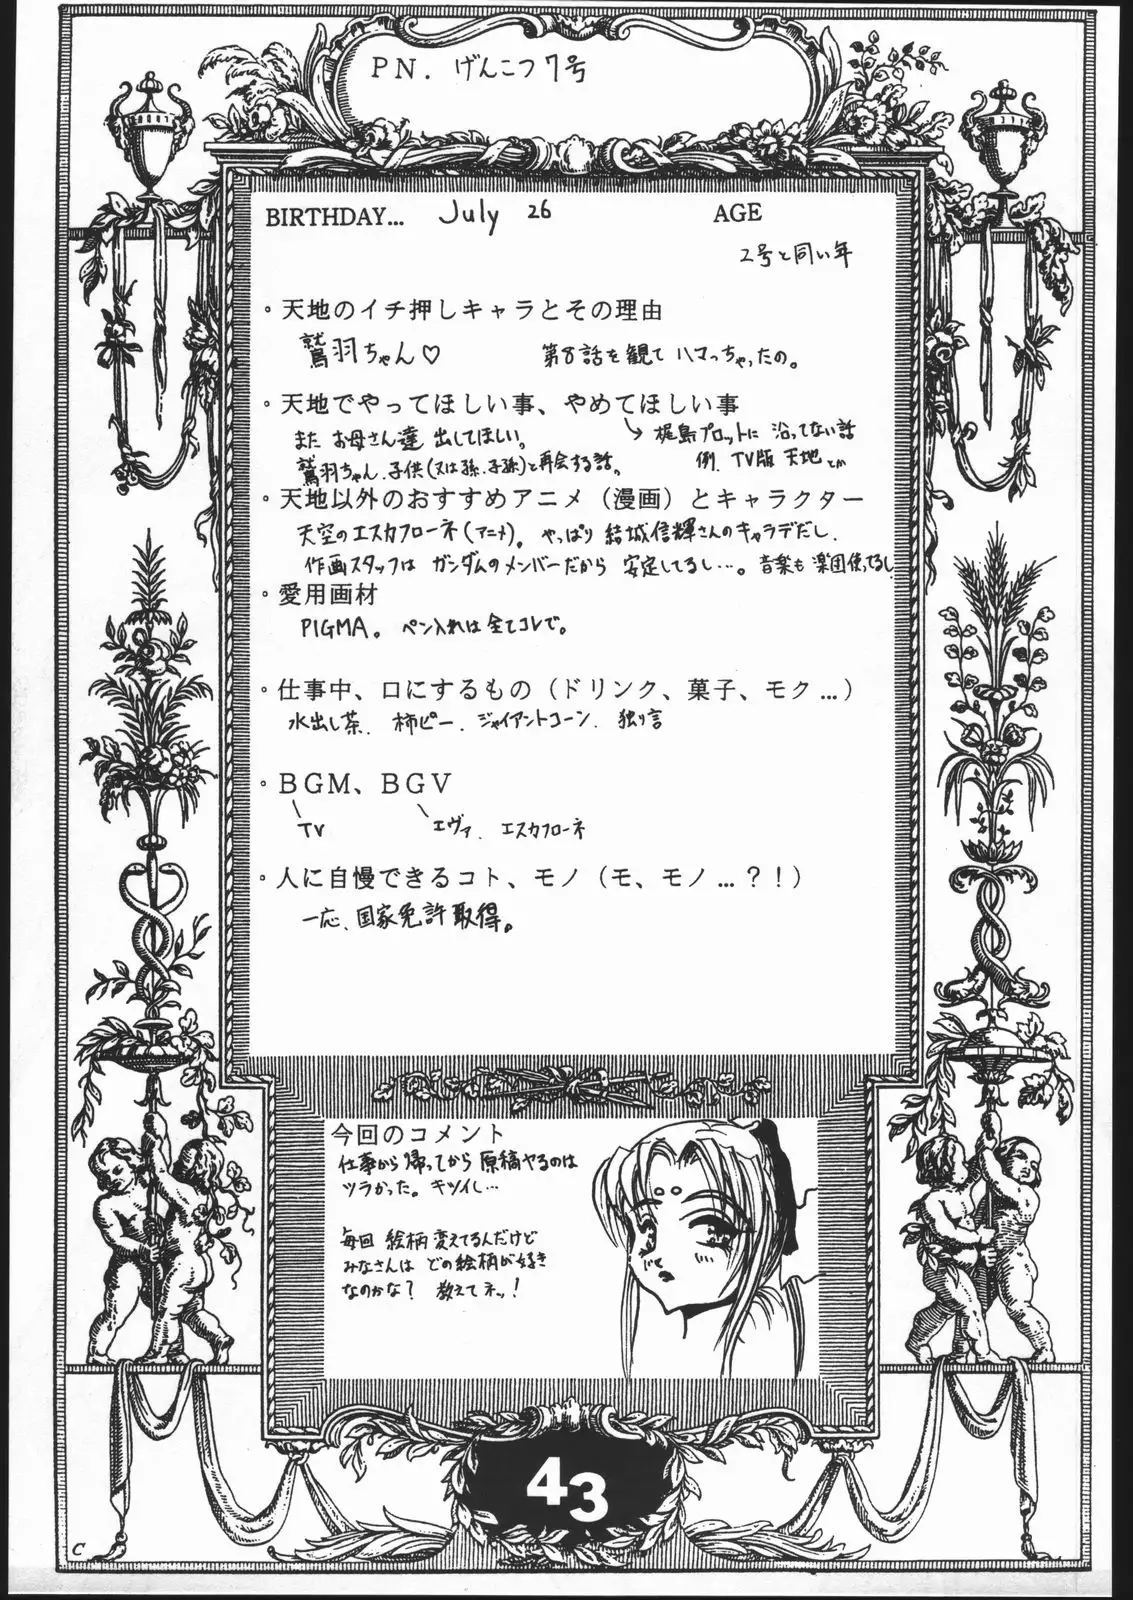 PN. げんこつ7号
BIRTHDAY... July 26 AGE
2号と同い年
・天地のイチ押しキャラとその理由
鷲羽ちゃん♡ 第8話を観て ハマっちゃったの。
・天地でやってほしい事、やめてほしい事
また お母さん達 出してほしい。 → 梶島プロットに 沿ってない話
鷲羽ちゃん、子供(又は孫、子孫)と再会する話。 例、TV版 天地とか
・天地以外のおすすめアニメ（漫画）とキャラクター
天空のエスカフローネ(アニメ)。やっぱり 結城信輝さんのキャラデだし、
作画スタッフは ガンダムのメンバーだから 安定してるし…。音楽も 楽団使ってるし
・愛用画材
PIGMA。 ペン入れは全てコレで。
・仕事中、口にするもの（ドリンク、菓子、モク...）
水出し茶、柿ピー、ジャイアントコーン、独り言
・BGM、BGV
TV エヴァ、エスカフローネ
・人に自慢できるコト、モノ（モ、モノ...？！）
一応、国家免許 取得。
今回のコメント
仕事から 帰ってから 原稿ヤるのは
ツラかった。キツイし…
毎回 絵柄 変えてるんだけど
みなさんは どの絵柄が好き
なのかな？ 教えてネッ！
43
C